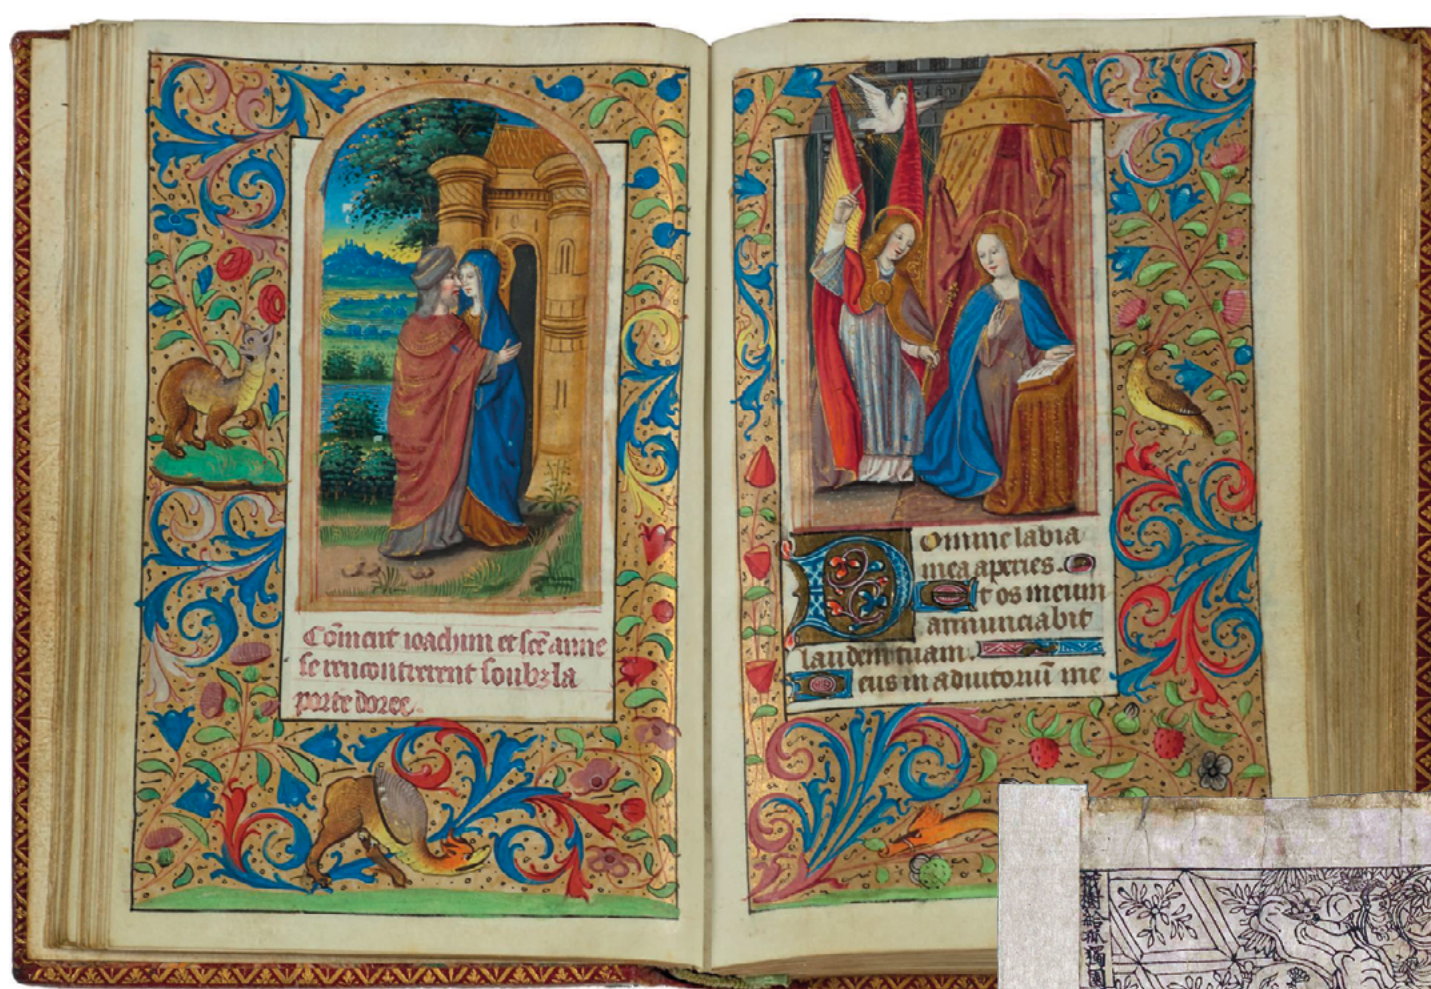 Co᷑ment ioachim et sc̄e anne
se rencontrerent soubz la
porte doree.
Domine labia
mea aperies.
Et os meum
annunciabit
laudem tuam.
Deus in adiutoriū me
祇樹給孤獨園